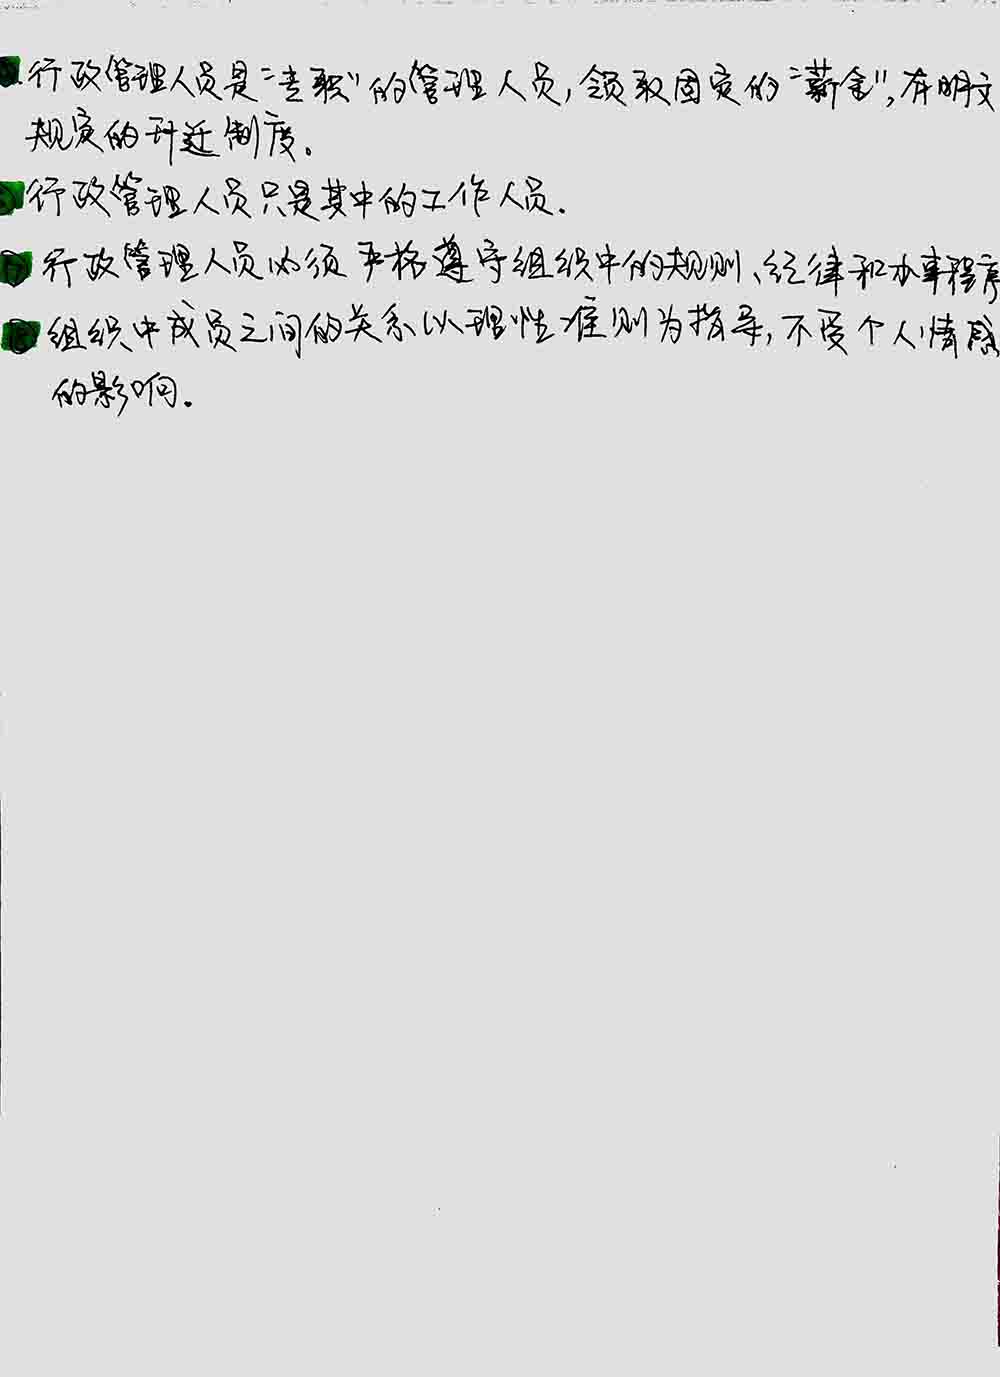 行政管理人员是“专职”的管理人员,领取固定的“薪金”,有明文
规定的升迁制度。
行政管理人员只是其中的工作人员.
行政管理人员必须严格遵守组织中的规则、纪律和办事程序
组织中成员之间的关系以理性准则为指导,不受个人情感
的影响.